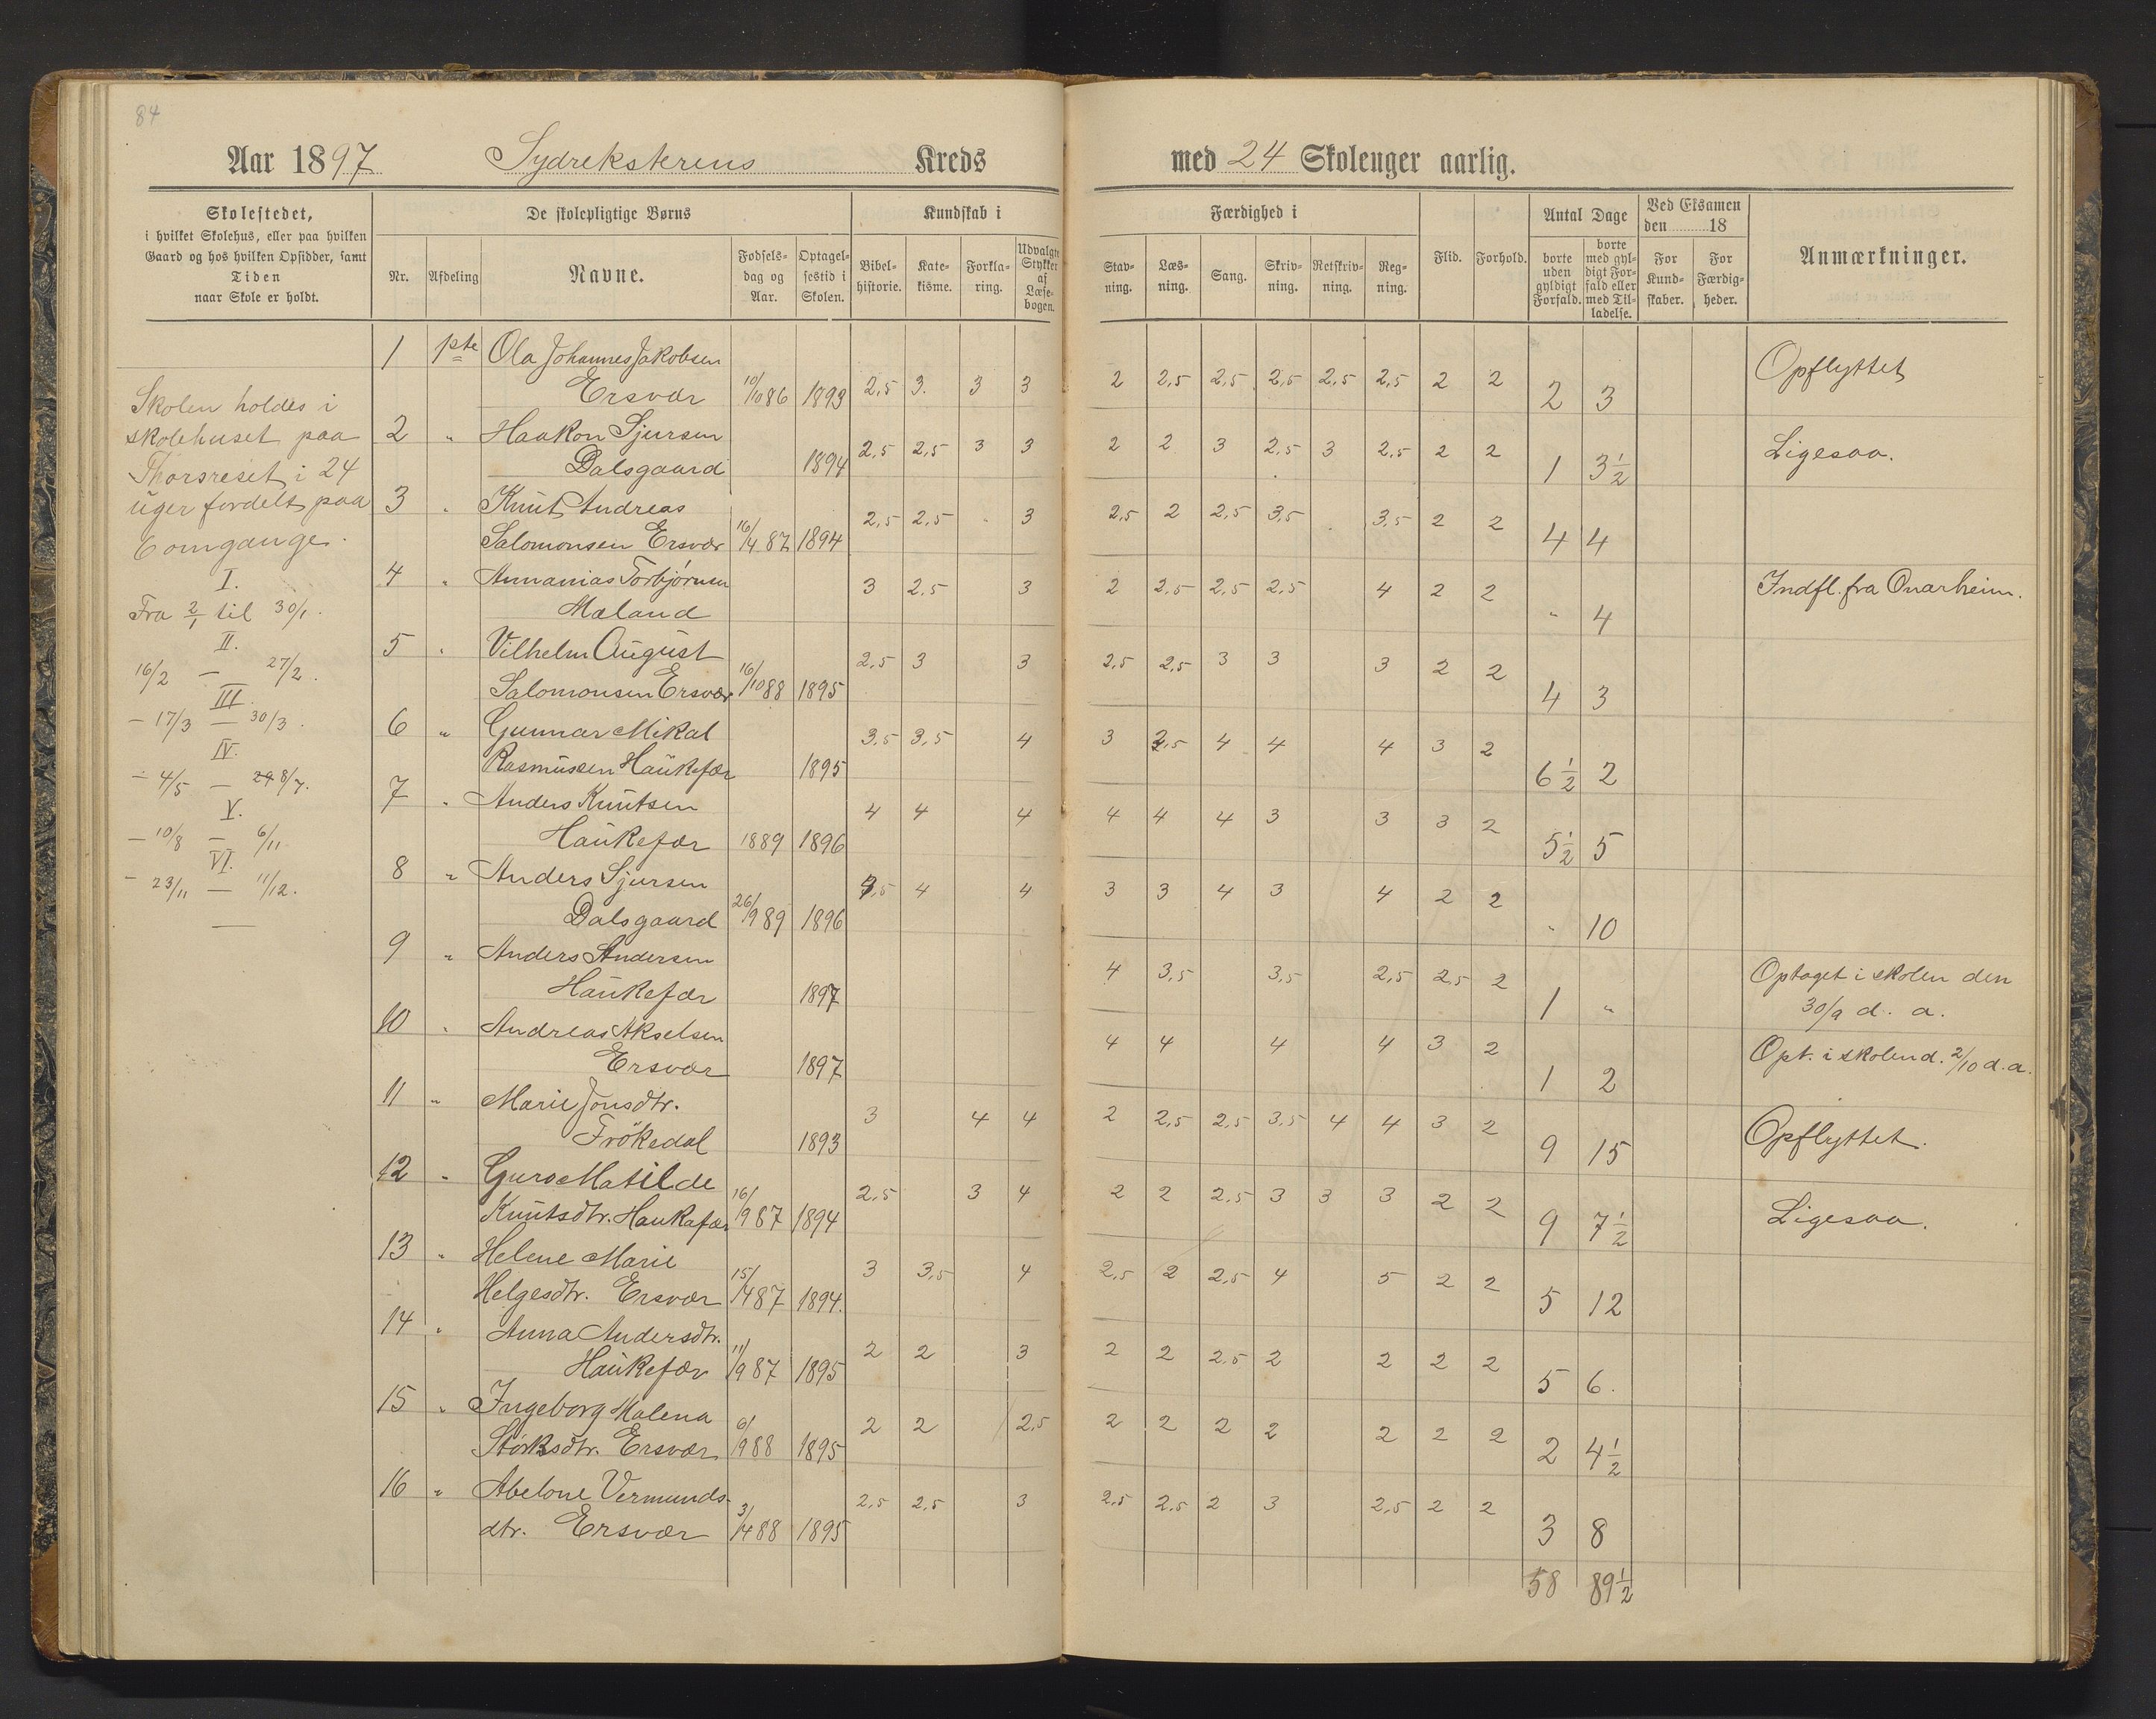 84
Aar 1897 Sydreksterens Kreds med 24 Skoleuger aarlig.
Skolestedet,
i hvilket Skolehus, eller paa hvilken
Gaard og hos hvilken Opsidder, samt
Tiden
naar Skole er holdt.
De skolepligtige Børns
Nr. Afdeling Navne. Fødsels-dag og Aar. Optagelsestid i Skolen.
Kundskab i
Bibelhistorie. Katekisme. Forklaring. Udvalgte Stykker af Læsebogen.
Færdighed i
Stavning. Læsning. Sang. Skrivning. Retskrivning. Regning.
Flid. Forhold.
Antal Dage
borte uden gyldigt Forfald. borte med gyldigt Forfald eller med Tilladelse.
Ved Eksamen den 18
For Kundskaber. For Færdigheder.
Anmærkninger.
Skolen holdes i
skolehuset paa
Thorsreset i 24
uger fordelt paa
6 omgange.
I.
Fra 2/1 til 30/1.
II.
16/2 — 27/2.
III.
— 17/3 — 30/3.
IV.
— 4/5 — 29 8/7.
V.
— 10/8 — 6/11
VI.
— 23/11 — 11/12.
1 1ste Ola Johannes Jakobsen
Ersvær 10/10 86 1893 2,5 3. 3 3 2 2,5 2,5 2,5 2,5 2,5 2 2 2 3 Opflyttet
2 " Haakon Sjursen
Dalsgaard 1894 2,5 2,5 3 3 2 2 3 2,5 3 2,5 2 2 1 3 1/2 Ligesaa.
3 " Knut Andreas
Salomonsen Ersvær 16/4 87 1894 2,5 2,5 " 3 2,5 2 2,5 3,5 . 3,5 2 2 4 4
4 " Annanias Torbjørnsen
Mæland 3 2,5 3 2 2,5 2,5 2,5 4 2 2 " 4 Indfl. fra Onarheim.
5 " Vilhelm August
Salomonsen Ersvær 16/10 88 1895 2,5 3 3 2,5 2,5 3 3 3 2 2 4 3
6 " Gunnar Mikal
Rasmussen Haukefær 1895 3,5 3,5 4 3 2,5 4 4 4 3 2 6 1/2 2
7 " Anders Knutsen
Haukefær 1889 1896 4 4 4 4 4 4 3 3 3 2 5 1/2 5
8 " Anders Sjursen
Dalsgaard 26/9 89 1896 3,5 4 4 3 3 4 3 4 2 2 " 10
9 " Anders Andersen
Haukefær 1897 4 3,5 3,5 2,5 2,5 2 1 " Optaget i skolen den
30/9 d. a.
10 " Andreas Akselsen
Ersvær 1897 4 4 4 4 3 2 1 2 Opt. i skolen d. 2/10 d. a.
11 " Marie Jonsdtr.
Frökedal 1893 3 4 4 2 2,5 2,5 3,5 4 4 3 2 9 15 Opflyttet.
12 " Guro Matilde
Knutsdtr. Haukafær 16/9 87 1894 2,5 3 4 2 2 2,5 3 3 3 2 2 9 7 1/2 Ligesaa.
13 " Helene Marie
Helgesdtr. Ersvær 15/4 87 1894. 3 3,5 4 2,5 2 2,5 4 5 2 2 5 12
14 " Anna Andersdtr.
Haukefær 11/9 87 1895 2 2 3 2 2 2,5 2 2 2 2 5 6.
15 " Ingeborg Malena
Størksdtr. Ersvær 6/9 88 1895 2 2 2,5 2 2 2 2 2 2 2 2 4 1/2
16 " Abelone Vermunds-
dtr. Ersvær 3/4 88 1895 2,5 2,5 3 2,5 2,5 2 3 2,5 2 2 3 8
58 89 1/2